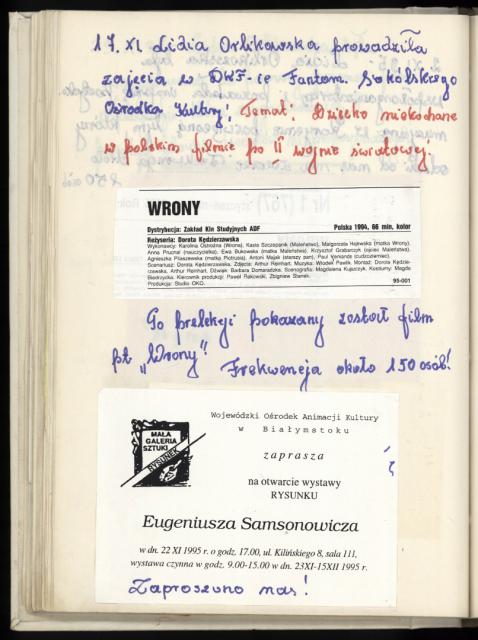 17.XI Lidia Orlikowska prowadziła
zajęcia w DKF-ie Fantom. Sokólskiego
Ośrodka Kultury; Temat: Dziecko niekochane
w polskim filmie po II wojnie światowej.
WRONY
Dystrybucja: Zakład Kin Studyjnych ADF Polska 1994, 66 min, kolor
Reżyseria: Dorota Kędzierzawska
Wykonawcy: Karolina Ostrożna (Wrona), Kasia Szczepanik (Maleństwo), Małgorzata Hajewska (matka Wrony),
Anna Prucnal (nauczycielka), Ewa Bukowska (matka Maleństwa), Krzysztof Grabarczyk (ojciec Maleństwa),
Agnieszka Pilaszewska (matka Piotrusia), Antoni Majak (starszy pan), Paul Verlande (cudzoziemiec).
Scenariusz: Dorota Kędzierzawska, Zdjęcia: Arthur Reinhart. Muzyka: Włodek Pawlik. Montaż: Dorota Kędzie-
rzawska, Arthur Reinhart. Dźwięk: Barbara Domaradzka. Scenografia: Magdalena Kujszczyk. Kostiumy: Magda
Biedrzycka. Kierownik produkcji: Paweł Rakowski, Zbigniew Stanek.
Produkcja: Studio OKO. 95-001
Po prelekcji pokazany został film
pt. „Wrony". Frekwencja około 150 osób!
MAŁA
GALERIA
SZTUKI
RYSUNEK
Wojewódzki Ośrodek Animacji Kultury
w Białymstoku
zaprasza
na otwarcie wystawy
RYSUNKU
Eugeniusza Samsonowicza
w dn. 22 XI 1995 r. o godz. 17.00, ul. Kilińskiego 8, sala 111,
wystawa czynna w godz. 9.00-15.00 w dn. 23XI-15XII 1995 r.
Zaproszono nas!